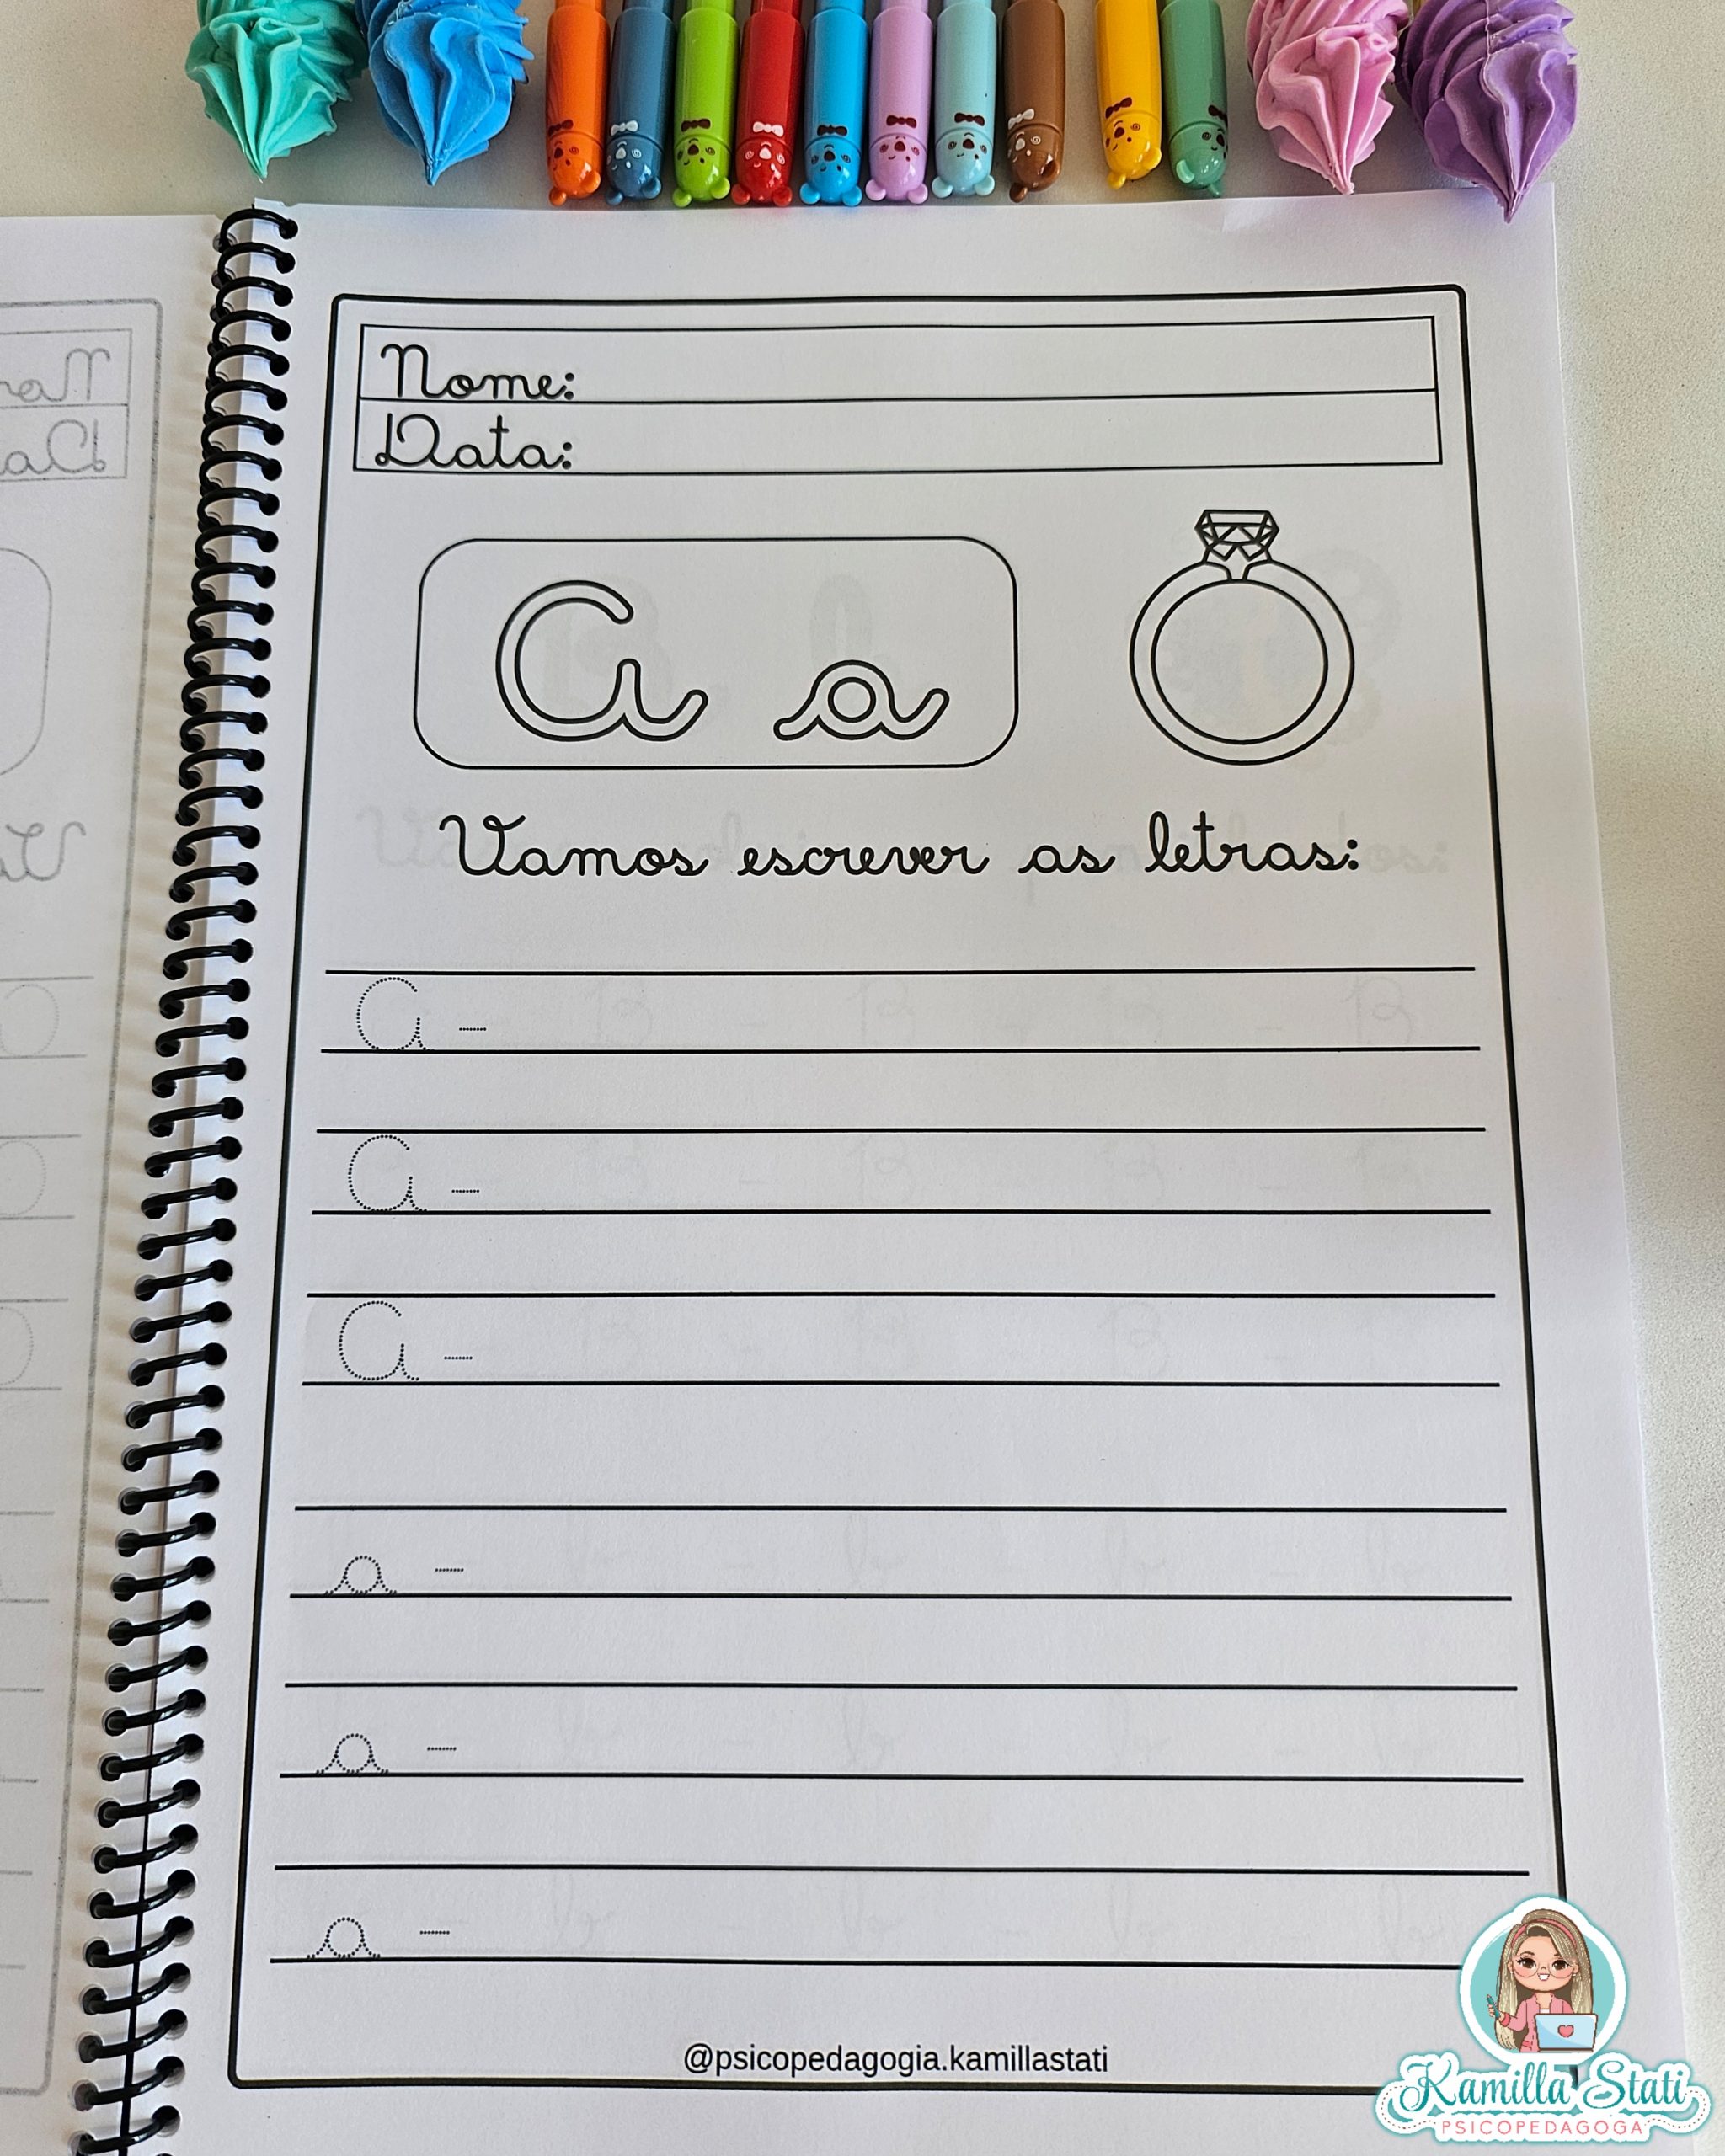 Nome:
Data:
A a
Vamos escrever as letras:
A -
A -
A -
a -
a -
a -
@psicopedagogia.kamillastati
Kamilla Stati
PSICOPEDAGOGA